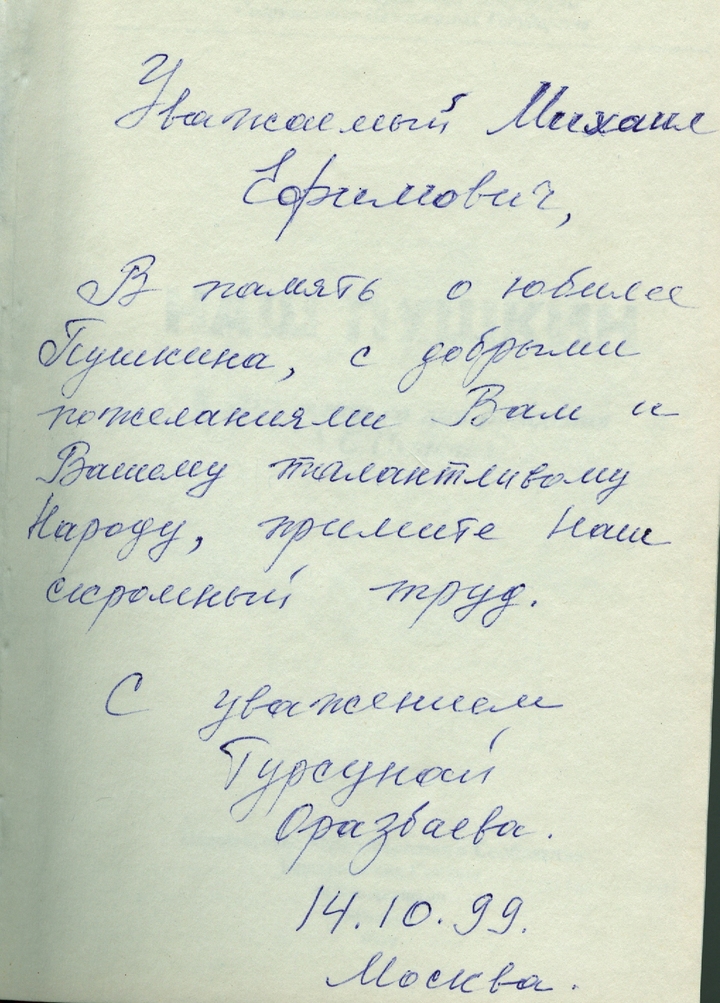 Уважаемый Михаил
Ефимович,
В память о юбилее
Пушкина, с добрыми
пожеланиями Вам и
Вашему талантливому
Народу, примите наш
скромный труд.
С уважением
Турсунай
Оразбаева.
14.10.99.
Москва.